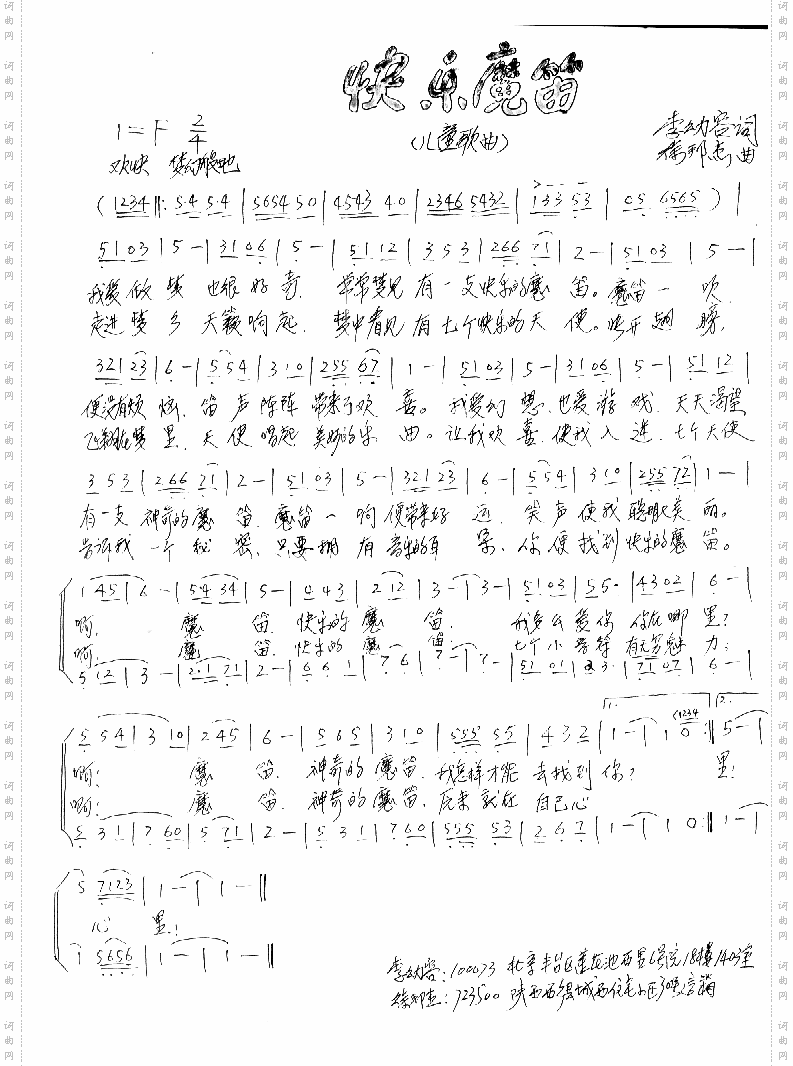 快乐魔笛
(儿童歌曲)
1=F 2/4
李幼容词
徐邦杰曲
欢快 梦幻般地
(1234 ‖: 5·4 5·4 | 5654 50 | 4543 4·0 | 2346 5432 | 133 53 | 05 6565 ) |
5103 | 5 – | 3106 | 5 – | 5112 | 353 | 266 71 | 2 – | 5103 | 5 – |
我爱做梦 也很好奇. 常常梦见 有一支快乐的魔 笛。魔笛一 吹
走进梦乡 天籁响起. 梦中看见 有七个快乐的天 使。展开翅 膀,
321 23 | 6 – | 554 | 310 | 255 67 | 1 – | 5103 | 5 – | 3106 | 5 – | 5112 |
便没有烦 恼. 笛声阵阵 带来了欢 喜。我爱幻 想.也爱游 戏. 天天渴望
飞翔在梦 里. 天使唱起 美妙的乐 曲。让我欢 喜.使我入 迷. 七个天使
353 | 266 71 | 2 – | 5103 | 5 – | 321 23 | 6 – | 554 | 310 | 255 72 | 1 – |
有一支 神奇的魔 笛. 魔笛一 响 便带来好 运. 笑声使我 聪明美 丽。
告诉我 一个秘 密. 只要拥 有音乐的耳 朵. 你便找到 快乐的魔 笛。
1 45 | 6 – | 54 34 | 5 – | 043 | 2 12 | 3 – | 3 – | 5103 | 55· | 4302 | 6 – |
啊. 魔 笛. 快乐的 魔 笛. 我多么爱你 你在哪 里?
啊. 魔 笛. 快乐的 魔 笛. 七个小音符 有无穷魅 力;
5 12 | 3 – | 2·1 71 | 2 – | 661 | 76 | 7 – | 7 – | 51 01 | 23· | 71 07 | 6 – |
1. 2.
5 54 | 3 10 | 2 45 | 6 – | 565 | 310 | 555 55 | 432 | 1 – | 1 0 (1234 :‖ 5 – |
啊! 魔 笛. 神奇的魔笛. 我怎样才能 去找到 你? 里!
啊! 魔 笛. 神奇的魔笛. 原来就在 自己心
5 31 | 7 60 | 5 71 | 2 – | 531 | 760 | 555 53 | 267 | 1 – | 1 0 :‖ 1 – |
5 7123 | 1 – | 1 – ‖
心 里!
1 5656 | 1 – | 1 – ‖
李幼容:100073 北京丰台区莲花池西里6号院18楼1403室
徐邦杰:723500 陕西西乡县城西住宅小区
词曲网